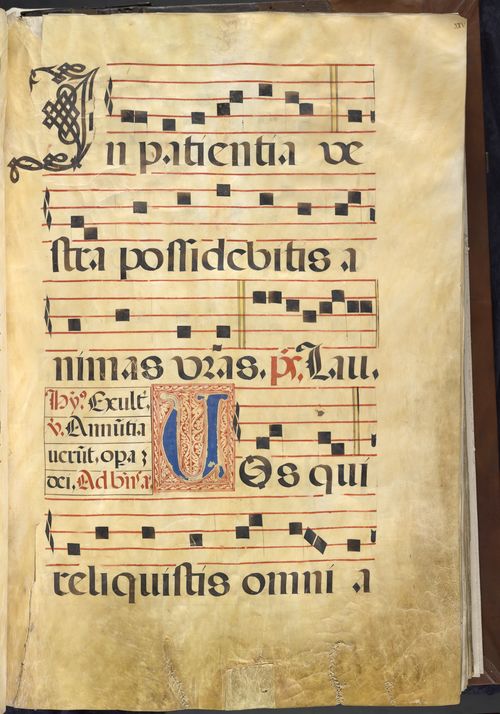 In patientia ve
stra possidebitis a
nimas vr̃as. ps̃. Lau.
Hỹ. Exult̃.
v. Annũtia
verũt. opa ʒ
dei. Ad bñ. a.
Vos qui
reliquistis omni a